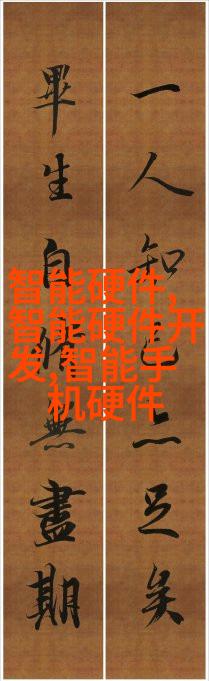 一人知己亦足矣
畢生自修無盡期
智能硬件,
智能硬件开
发,智能手
机硬件